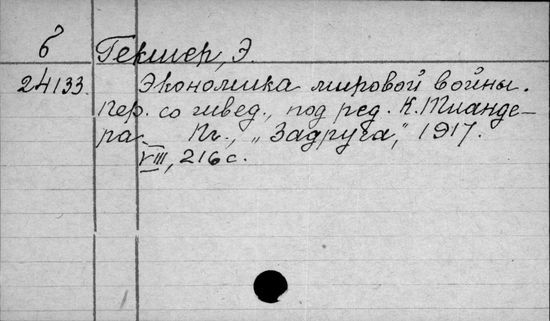 б Гекшер, Э.
24133. Экономика мировой войны.
Пер. со швед., под ред. К. Тианде-
ра. Пг., "Задруга", 1917.
VIII, 216 с.